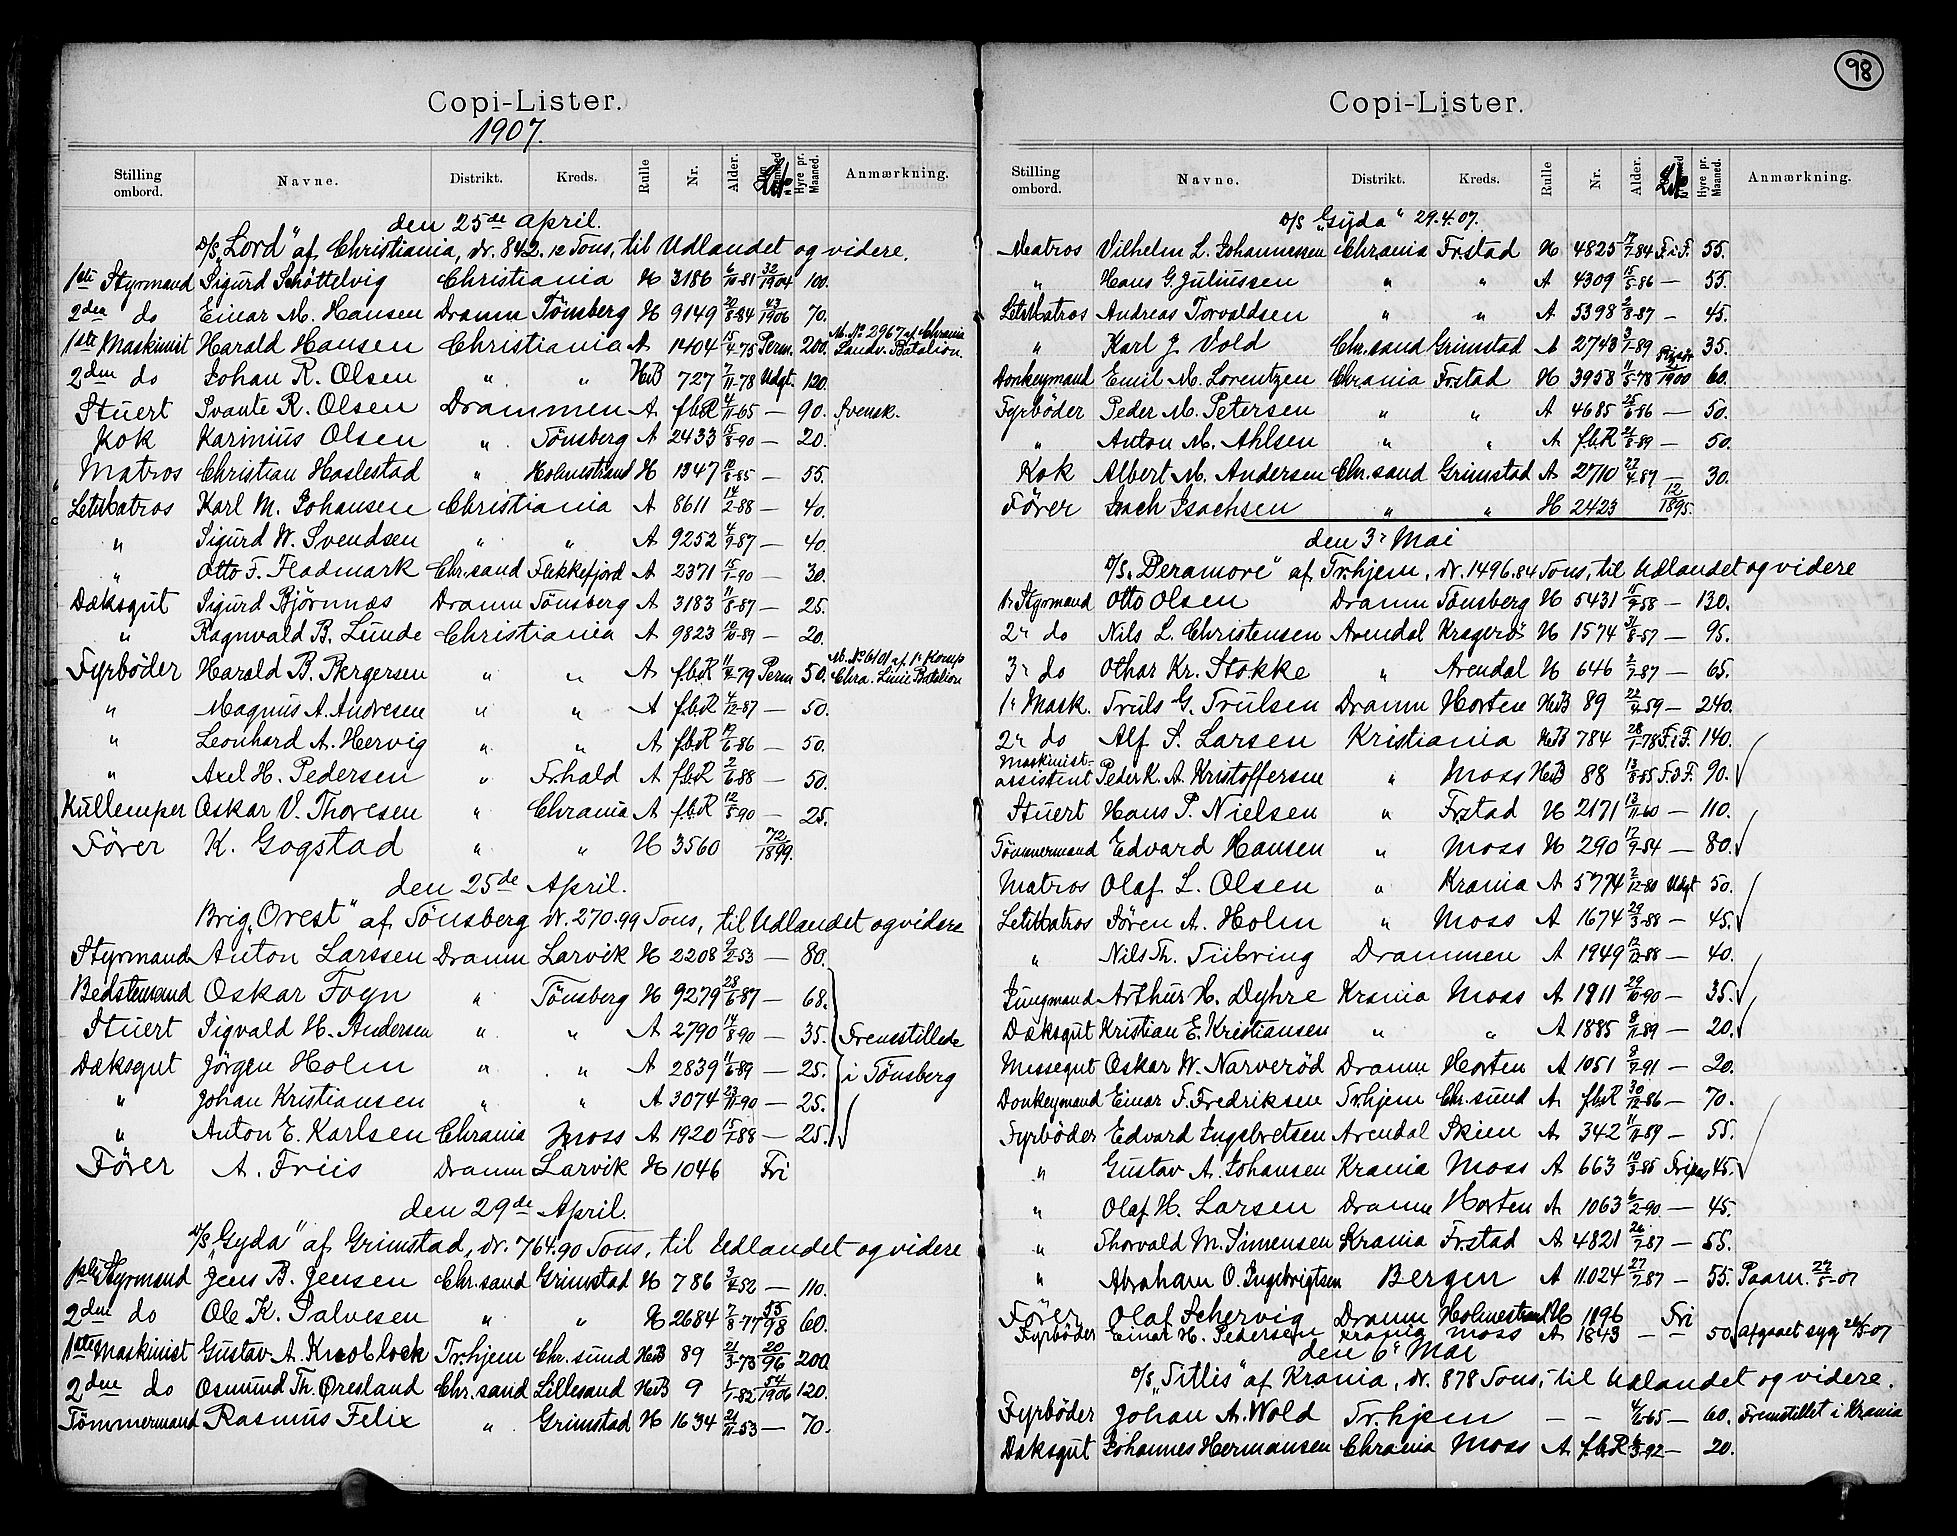 98
Copi-Lister.
1907.
Stilling ombord. Navne. Distrikt. Kreds. Rulle Nr. Alder. Hyre pr. Maaned. Anmærkning.
den 25de April.
D/S „Lord" af Christiania, dr. 842.12 Tons, til Udlandet og videre.
1ste Styrmand Sigurd Schöttelvig Christiania H 3186 6/10-81 32/1904 100.
2den do Einar M. Hansen Dramn Tönsberg H 9149 20/8-84 43/1906 70.
1ste Maskinist Harald Hansen Christiania A 1404 15/4-75 Perm. 200. M. No 2967 af Chrania Landv. Batalion.
2den do Johan R. Olsen " " HuB 727 7/11-78 Udgt. 120.
Stuert Svante R. Olsen Drammen A fbR 4/11-65 — 90. Svensk.
Kok Karinius Olsen " Tönsberg A 2433 15/8-90 — 20.
Matros Christian Haslestad " Holmestrand H 1347 10/8-85 — 55.
Letmatros Karl M. Johansen Christiania A 8611 14/2-88 — 40.
" Sigurd W. Svendsen " " A 9252 4/9-87 — 40.
" Otto F. Fladmark Chr.sand Flekkefjord A 2371 15/1-90 — 30.
Dæksgut Sigurd Björnnæs Dramn Tönsberg A 3183 11/8-87 — 25.
" Ragnvald B. Lunde Christiania A 9823 10/10-89 — 20.
Fyrböder Harald B. Bergersen " " A fbR 11/2-79 Perm 50. M. No 6101 af 1ste Komp Chra. Linie Batalion
" Magnus A. Andresen " " A fbR 4/12-87 — 50.
" Leonhard A. Hervig " " A fbR 17/6-86 — 50.
" Axel H. Pedersen " Frhald A fbR 2/6-88 — 50.
Kullemper Oskar V. Thoresen " Chrania A fbR 12/5-90 — 25.
Förer K. Gogstad " " H 3560 72/1899.
den 25de April.
Brig „Orest" af Tönsberg dr. 270.99 Tons, til Udlandet og videre
Styrmand Anton Larssen Dramn Larvik H 2208 9/2-53 — 80.
Bedstemand Oskar Foyn " Tönsberg H 9279 28/6-87 — 68.
Stuert Sigvald H. Andersen " " A 2790 14/8-90 — 35. Fremstillede
Dæksgut Jörgen Holm " " A 2839 11/6-89 — 25. i Tönsberg
" Johan Kristiansen " " A 3074 23/11-90 — 25.
" Anton E. Karlsen Chrania Moss A 1920 15/7-88 — 25.
Förer A. Friis Dramn Larvik H 1046 Fri
den 29de April.
D/S „Gyda" af Grimstad, dr. 764.90 Tons, til Udlandet og videre
1ste Styrmand Jens B. Jensen Chr.sand Grimstad H 786 3/4-52 — 110.
2den do Ole K. Salvesen " " H 2684 7/8-77 55/98 60.
1ste Maskinist Gustav A. Knoblock Tr.hjem Chr.sund HuB 89 21/3-73 20/96 200.
2den do Osmund Th. Øresland Chr.sand Lillesand HuB 9 1/1-82 54/1906 120.
Tömmermand Rasmus Felix " Grimstad H 1634 21/11-53 — 70.
Copi-Lister.
Stilling ombord. Navne. Distrikt. Kreds. Rulle Nr. Alder. Hyre pr. Maaned. Anmærkning.
D/S „Gyda" 29.4.07.
Matros Vilhelm L. Johannesen Chrania Frstad H 4825 17/7-84 F.i F. 55.
" Hans G. Juliussen " " A 4309 15/5-86 — 55.
Letmatros Andreas Torvaldsen " " A 5398 2/8-87 — 45.
" Karl J. Vold Chr.sand Grimstad A 2743 3/1-89 35.
Donkeymand Emil M. Lorentzen Chrania Frstad H 3958 11/5-78 1900 60.
Fyrböder Peder M. Petersen " " A 4685 25/6-86 — 50.
" Anton M. Ahlsen " " A fbR 21/8-89 — 50.
Kok Albert M. Andersen Chr.sand Grimstad A 2710 27/4-87 — 30.
Förer Isach Isachsen " " H 2423 12/1895.
den 3die Mai
D/S „Peramore" af Tr.hjem, dr. 1496.84 Tons, til Udlandet og videre
1ste Styrmand Otto Olsen Dramn Tönsberg H 5431 11/9-58 — 130.
2den do Nils L. Christensen Arendal Kragerö H 1574 31/8-57 — 95.
3die do Othar Kr. Stokke " Arendal H 646 2/7-87 — 65.
1ste Mask. Truls G. Trulsen Dramn Horten HuB 89 22/4-59 — 240.
2den do Alf S. Larsen Kristiania HuB 784 28/1-78 F.i F. 140.
Maskinist-assistent Peder K. A. Kristoffersen " Moss HuB 88 13/8-85 F.i F. 90.
Stuert Hans P. Nielsen " Frstad H 2171 13/11-60 — 110.
Tömmermand Edvard Hansen " Moss H 290 17/9-54 — 80.
Matros Olaf L. Olsen " Krania A 5774 2/12-80 Udgt 50.
Letmatros Sören A. Holm " Moss A 1674 29/3-88 — 45.
" Nils Th. Tubring Drammen A 1949 12/12-88 — 40.
Jungmand Arthur H. Dyhre Krania Moss A 1911 29/10-90 — 35.
Dæksgut Kristian E. Kristiansen " " A 1885 8/11-89 — 20.
Messegut Oskar W. Narveröd Dramn Horten A 1051 8/7-91 — 20.
Donkeymand Einar F. Fredriksen Tr.hjem Chr.sund A fbR 30/12-86 — 70.
Fyrböder Edvard Ingebretsen Arendal Skien A 342 11/11-89 — 55.
" Gustav A. Johansen Krania Moss A 663 10/3-85 Fripas 45.
" Olaf H. Larsen Dramn Horten A 1063 6/2-90 — 45.
" Thorvald M. Simensen Krania Frstad A 4821 26/7-87 — 55.
" Abraham O. Ingebrigtsen Bergen A 11.024 27/7-87 — 55. Paam. 22/5-07
Förer Olaf Schervig Dramn Holmestrand H 1196 Fri
Fyrböder Einar H. Pedersen Krania Moss A 1843 — — 50. afgaaet syg 26/5-07
den 6te Mai
D/S „Titlis" af Krania, dr. 878 Tons, til Udlandet og videre.
Fyrböder Johan A. Wold Tr.hjem — — 4/6-65 — 60. Fremstillet i Krania
Dæksgut Johannes Hermansen Chrania Moss A fbR 6/3-92 — 20.